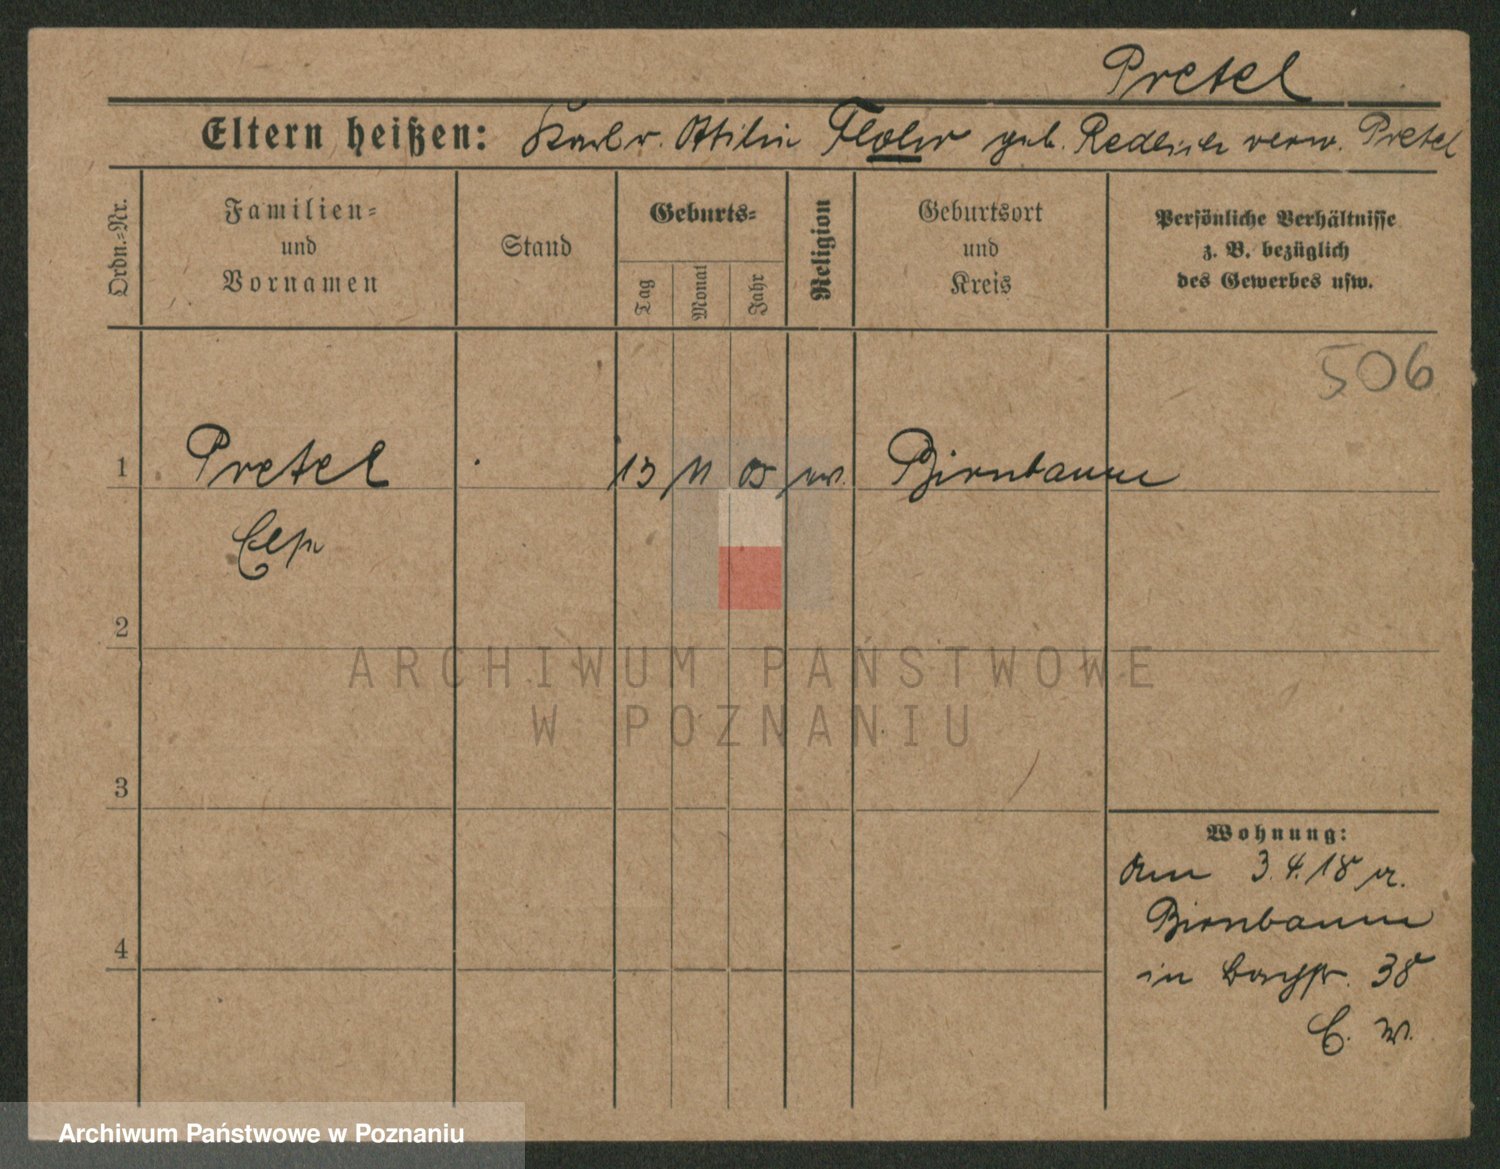 Pretel
Eltern heißen: Karl u. Ottilie Floher geb. Redlich verw. Pretel
Ordn.-Nr.
Familien-
und
Vornamen
Stand
Geburts-
Tag
Monat
Jahr
Religion
Geburtsort
und
Kreis
Persönliche Verhältnisse
z. B. bezüglich
des Gewerbes usw.
506
1 Pretel 13 11 05 ev. Birnbaum
Else
2
ARCHIWUM PAŃSTWOWE
W POZNANIU
3
Wohnung:
am 3.4.18 v.
Birnbaum
4
in 38
Archiwum Państwowe w Poznaniu